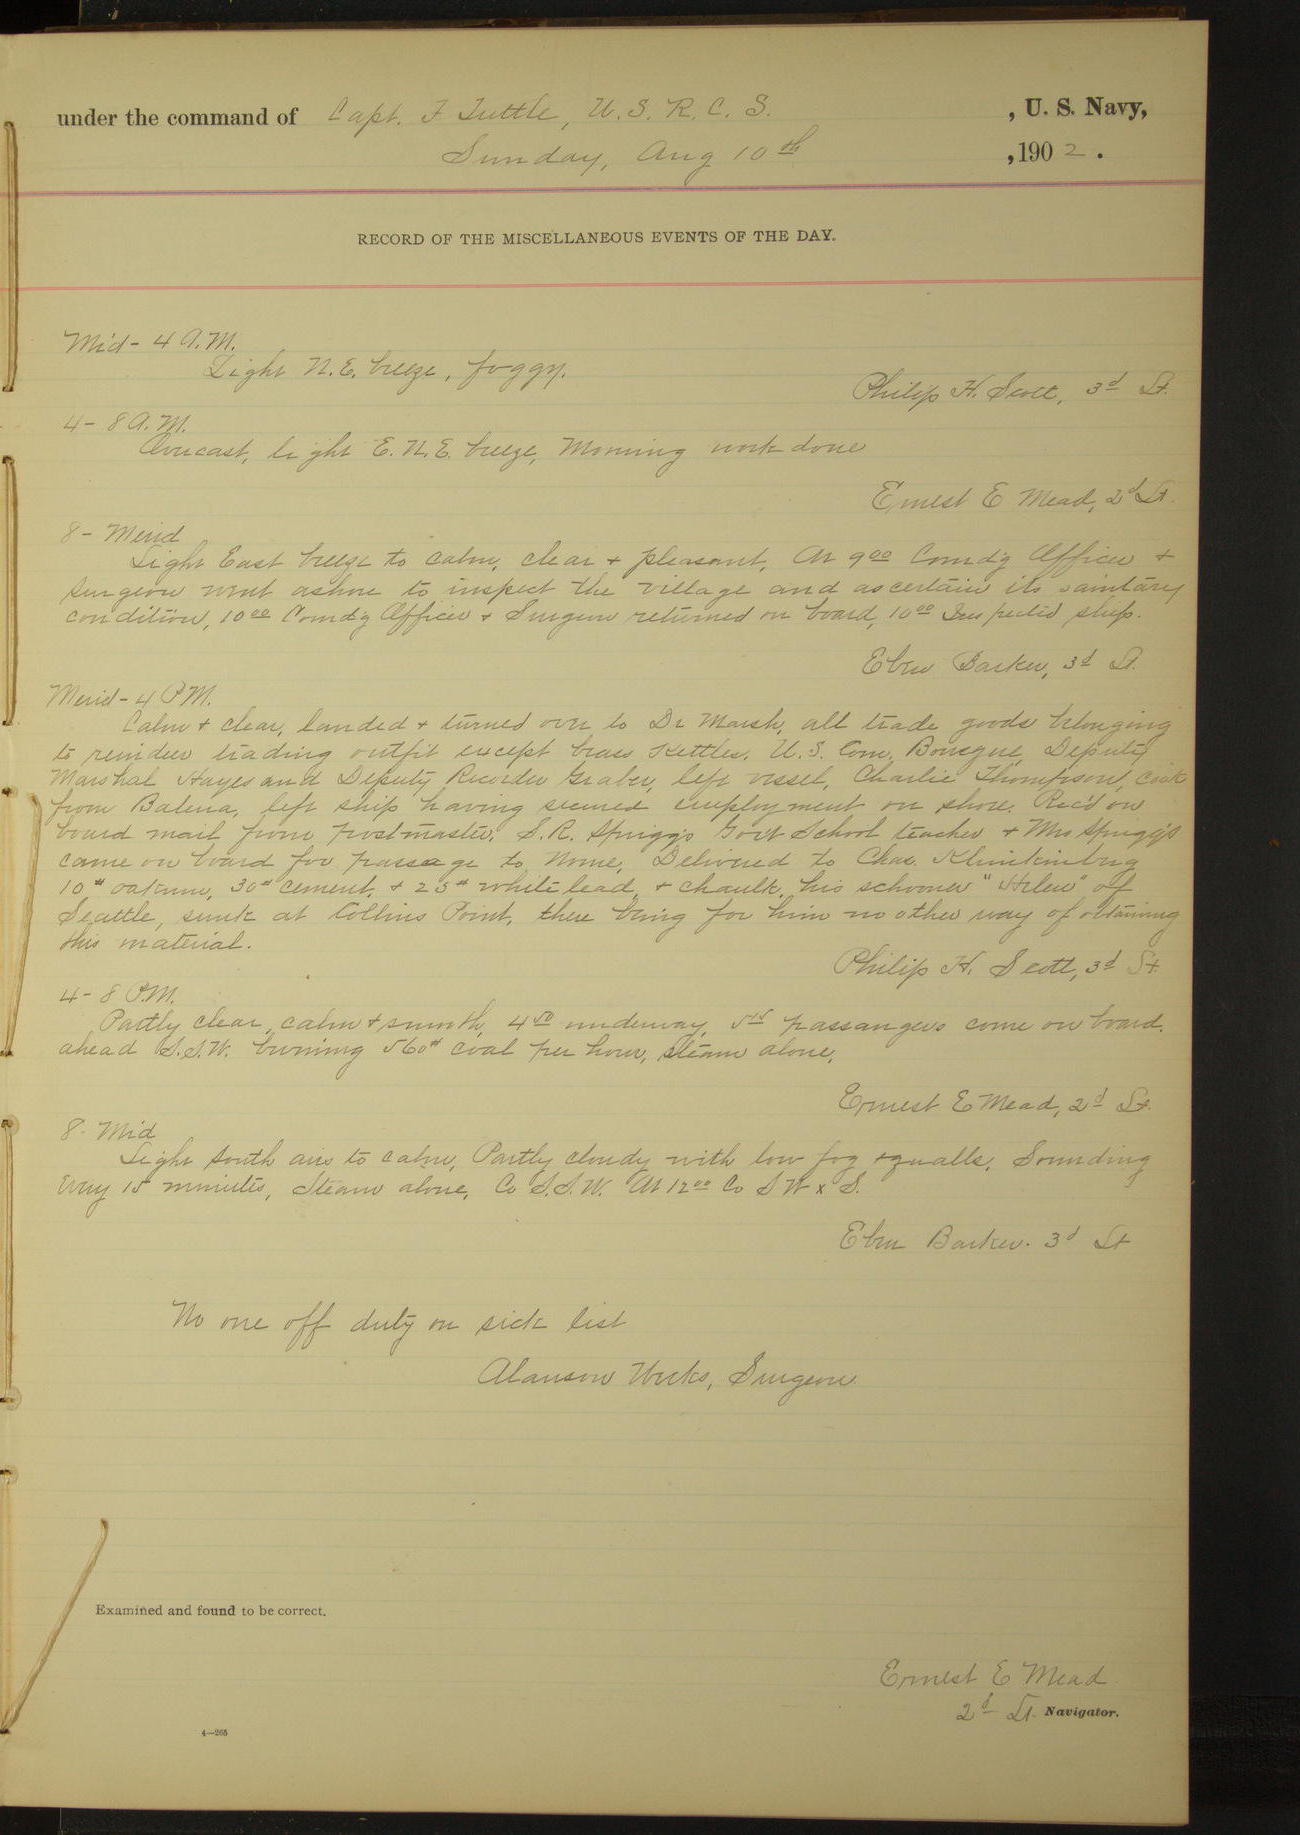 under the command of Capt. F Tuttle, U. S. R. C. S. , U. S. Navy,
Sunday, Aug 10th ,1902.
RECORD OF THE MISCELLANEOUS EVENTS OF THE DAY.
Mid - 4 A.M.
Light N.E. breeze, foggy.
Philip H. Scott, 3d Lt.
4 - 8 A.M.
Overcast, light E.N.E. breeze, Morning work done
Ernest E Mead, 2d Lt.
8 - Merid
Light East breeze to calm, clear + pleasant, At 9 00 Comd'g Officer +
surgeon went ashore to inspect the village and ascertain its sanitary
condition, 10 00 Comdg Officer + Surgeon returned on board, 10 00 Inspected ship.
Eben Barker, 3d Lt.
Merid - 4 P.M.
Calm + clear, landed + turned over to Dr Marsh, all trade goods belonging
to reindeer trading outfit except brass Kettles. U. S. Com. Deputy
Marshal Hayes and Deputy Recorder Graber, left vessel, Charlie Thompson, cook
from Balena, left ship having secured employment on shore. Rec'd on
board mail from postmaster, S. R. Spriggs Gov't School teacher + Mrs Spriggs
came on board for passage to Nome, Delivered to Chas.
10# oakum, 30# cement, + 25# white lead, + chaulk, his schooner "Helen" of
Seattle, sunk at Collins Point, there being for him no other way of obtaining
this material.
Philip H. Scott, 3d Lt.
4 - 8 P.M.
Partly clear, calm + smooth, 4 50 underway, 5 15 passangers come on board.
ahead S.S.W. burning 560# coal per hour, steam alone,
Ernest E Mead, 2d Lt.
8 - Mid
Light South airs to calm, Partly cloudy with low fog squalls. Sounding
every 15 minutes, Steam alone, Co S.S.W. At 12 00 Co S W x S.
Eben Barker. 3d Lt
No one off duty on sick list
Alanson Weeks, Surgeon
Examined and found to be correct.
Ernest E Mead
2d Lt. Navigator.
4—265